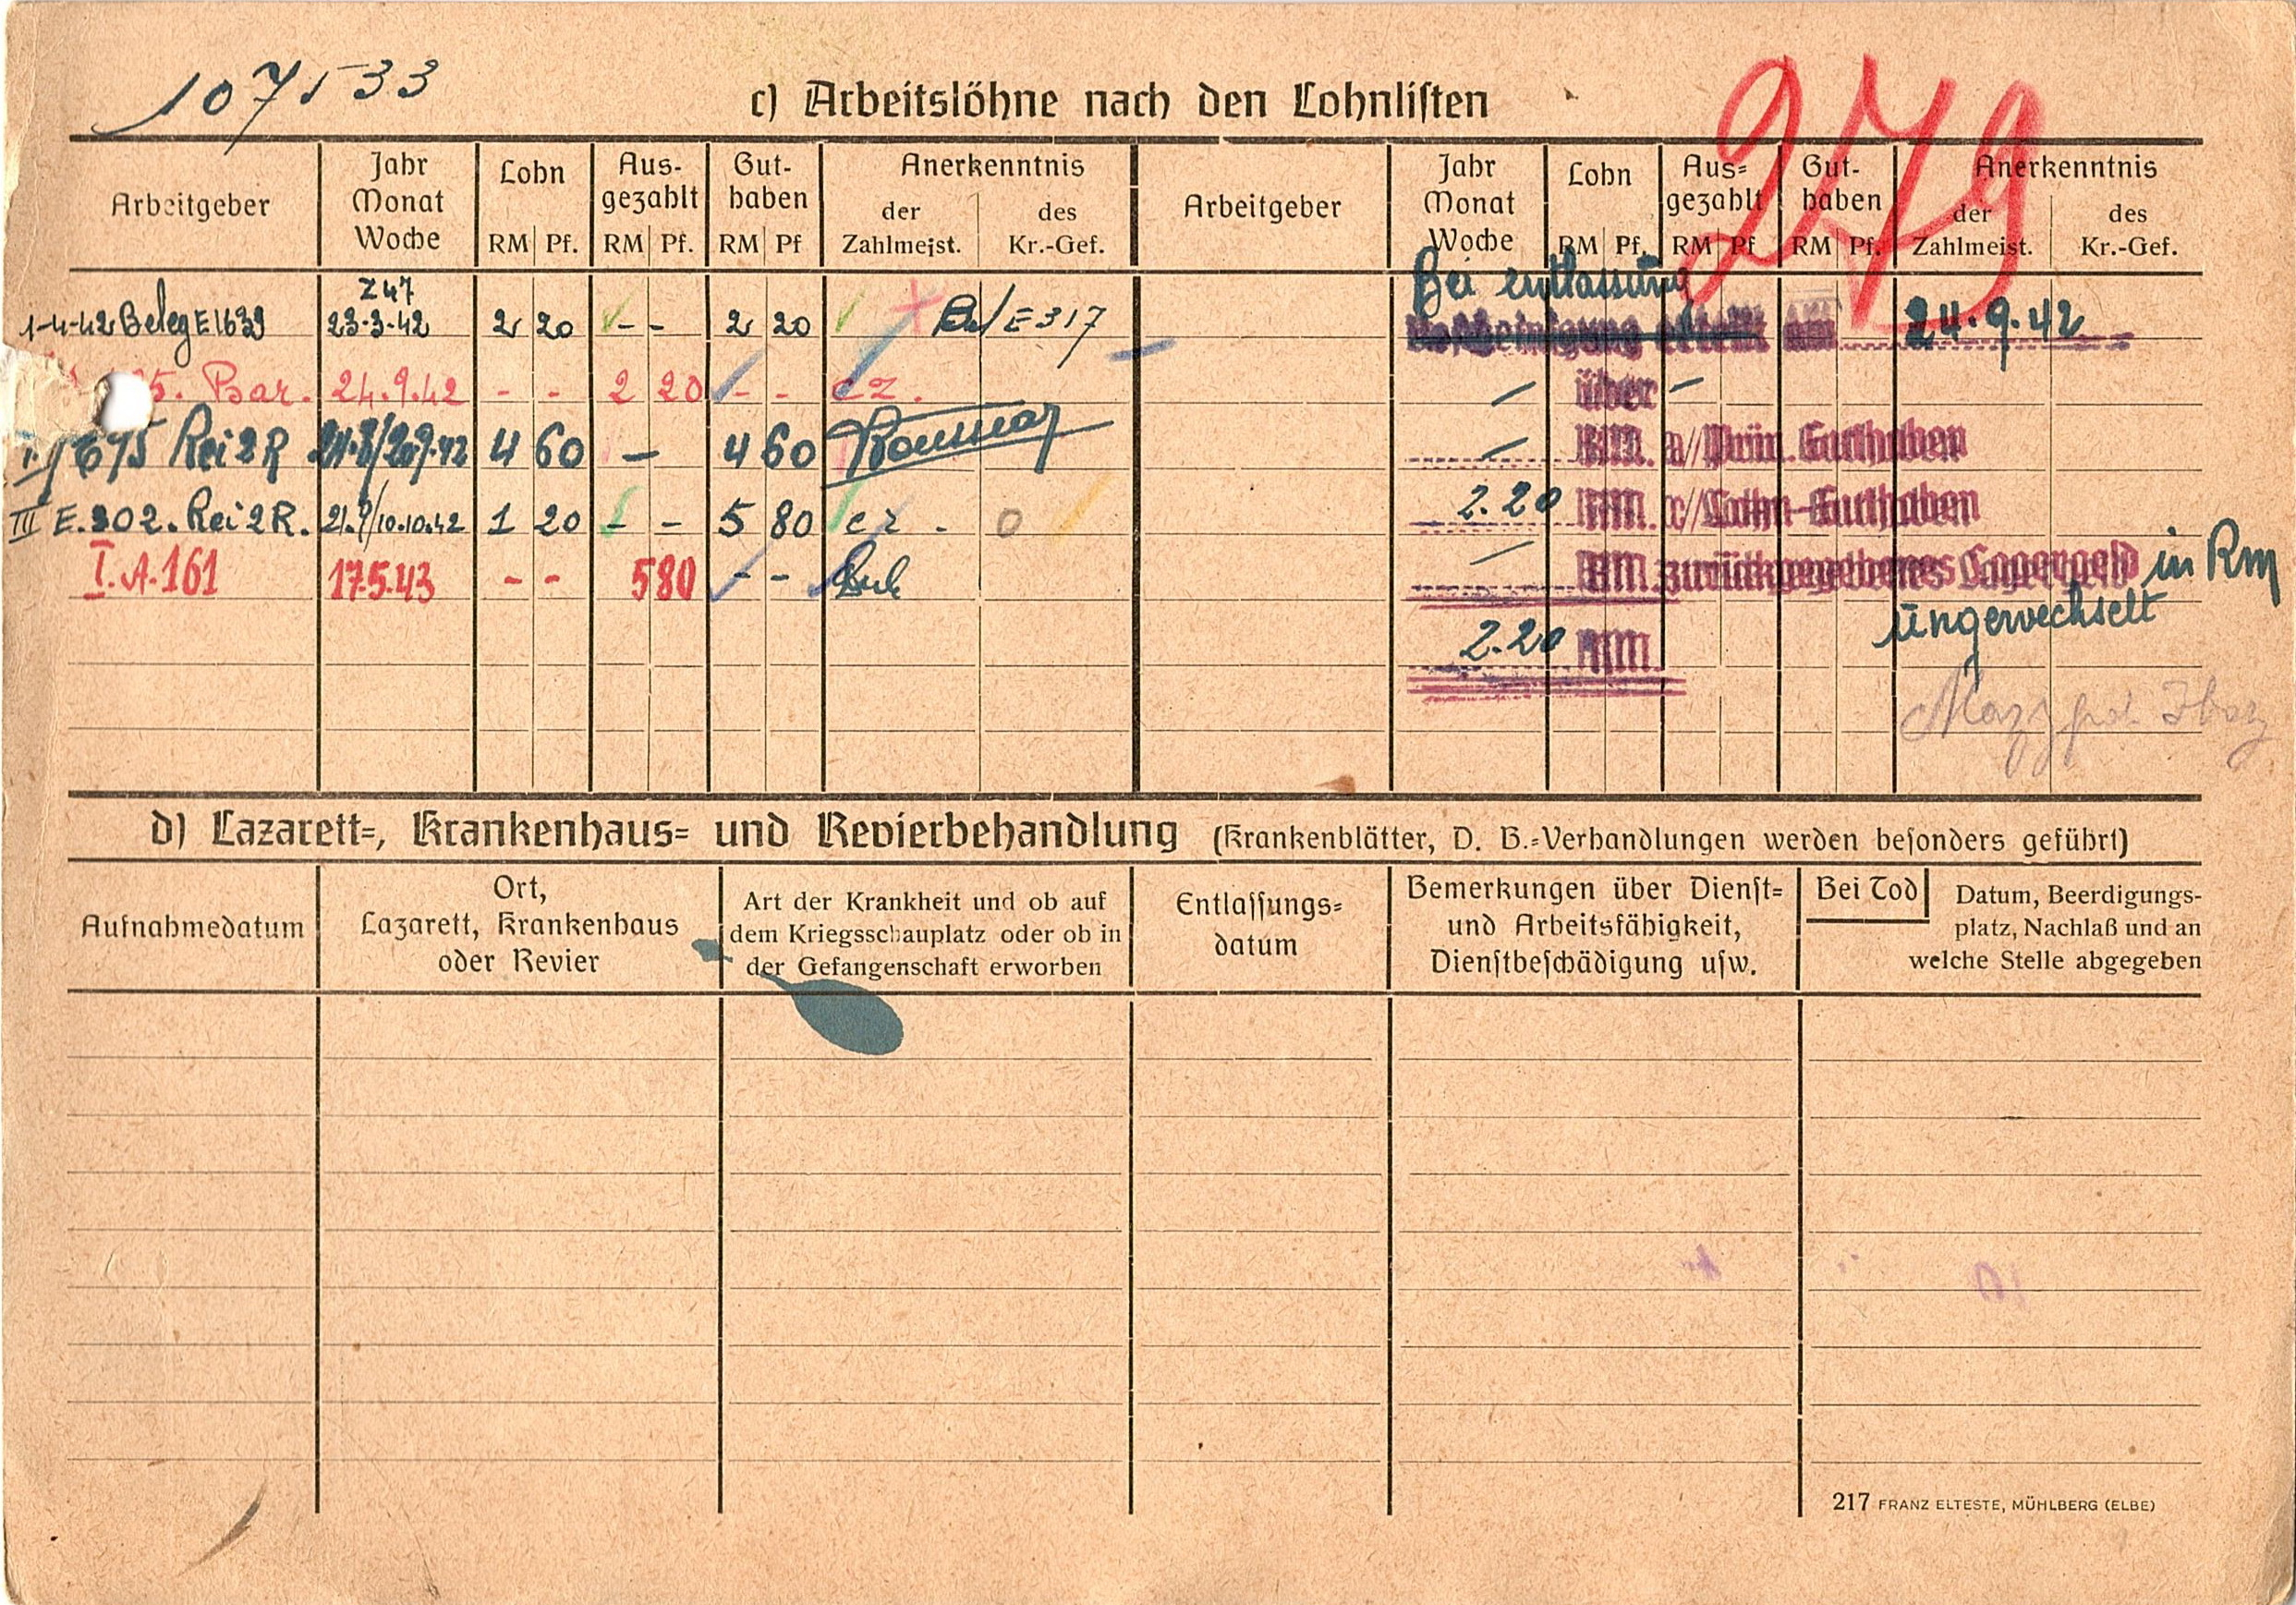 107533
279
c) Arbeitslöhne nach den Lohnlisten
Arbeitgeber
Jahr
Monat
Woche
Lohn
RM Pf.
Aus-
gezahlt
RM Pf.
Gut-
haben
RM Pf
Anerkenntnis
der
Zahlmeist.
des
Kr.-Gef.
Arbeitgeber
Jahr
Monat
Woche
Lohn
RM Pf.
Aus=
gezahlt
RM Pf
Gut-
haben
RM Pf.
Anerkenntnis
der
Zahlmeist.
des
Kr.-Gef.
Z 47
1-4-42 Beleg E 1639 23-3-42 2 20 - - 2 20 E 317
5. Bar. 24.9.42 - - 2 20 - - cz.
675 Rei 2 R 4 60 — 4 60
III E. 302. Rei 2 R. 21.9/10.10.42 1 20 - - 5 80 cz.
I. A. 161 17.5.43 - - 5 80 - -
Bei entlassung
erteilt am 24.9.42
— über —
— RM. a// Prüm. Guthaben
2.20 RM. c// Lohn-Guthaben
— RM. zurückgegebenes Lagergeld in Rm
ungewechselt
2.20 RM.
d) Lazarett=, Krankenhaus= und Revierbehandlung (Krankenblätter, D. B.=Verhandlungen werden besonders geführt)
Aufnahmedatum
Ort,
Lazarett, Krankenhaus
oder Revier
Art der Krankheit und ob auf
dem Kriegsschauplatz oder ob in
der Gefangenschaft erworben
Entlassungs=
datum
Bemerkungen über Dienst=
und Arbeitsfähigkeit,
Dienstbeschädigung usw.
Bei Tod
Datum, Beerdigungs-
platz, Nachlaß und an
welche Stelle abgegeben
217 FRANZ ELTESTE, MÜHLBERG (ELBE)